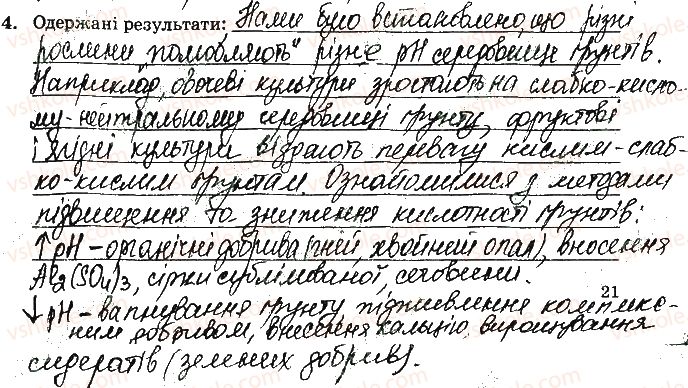 4. Одержані результати: Нами було встановлено, що різні
рослини „полюбляють" різне pH середовище ґрунтів.
Наприклад, овочеві культури зростають на слабко-кисло-
му-нейтральному середовищі ґрунту, фруктові
і ягідні культури віддають перевагу кислим-слаб-
ко-кислим ґрунтам. Ознайомилися з методами
підвищення та зниження кислотності ґрунтів:
↑ pH – органічні добрива (гній, хвойний опал), внесення
Al₂(SO₄)₃, сірки сублімованої, сечовини.
21
↓ pH – вапнування ґрунту, підживлення комплекс-
ним добривом, внесення кальцію, вирощування
сидератів (зелених добрив).